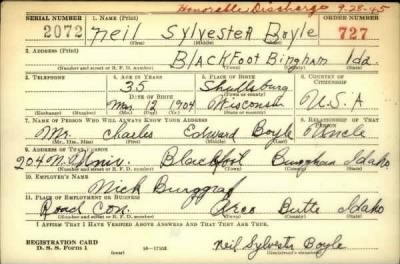 Honorable Discharge 9-28-45
SERIAL NUMBER 1. NAME (Print) ORDER NUMBER
2072 Neil Sylvester Boyle 727
(First) (Middle) (Last)
2. ADDRESS (Print)
BlackFoot Bingham Ida.
(Number and street or R. F. D. number) (Town) (County) (State)
3. TELEPHONE 4. AGE IN YEARS 5. PLACE OF BIRTH 6. COUNTRY OF CITIZENSHIP
35 Shullsburg
(Town or county)
DATE OF BIRTH
Mar. 12 1904 Wisconsin U.S.A
(Exchange) (Number) (Mo.) (Day) (Yr.) (State or country)
7. NAME OF PERSON WHO WILL ALWAYS KNOW YOUR ADDRESS 8. RELATIONSHIP OF THAT PERSON
Mr. Charles Edward Boyle Uncle
(Mr., Mrs., Miss) (First) (Middle) (Last)
9. ADDRESS OF THAT PERSON
204 N. Univ. Blackfoot Bingham Idaho
(Number and street or R. F. D. number) (Town) (County) (State)
10. EMPLOYER'S NAME
Nick Burggraf
11. PLACE OF EMPLOYMENT OR BUSINESS
Road Con. Arco Butte Idaho
(Number and street or R. F. D. number) (Town) (County) (State)
I AFFIRM THAT I HAVE VERIFIED ABOVE ANSWERS AND THAT THEY ARE TRUE.
REGISTRATION CARD
D. S. S. Form 1 Neil Sylvester Boyle
(over) (Registrant's signature)